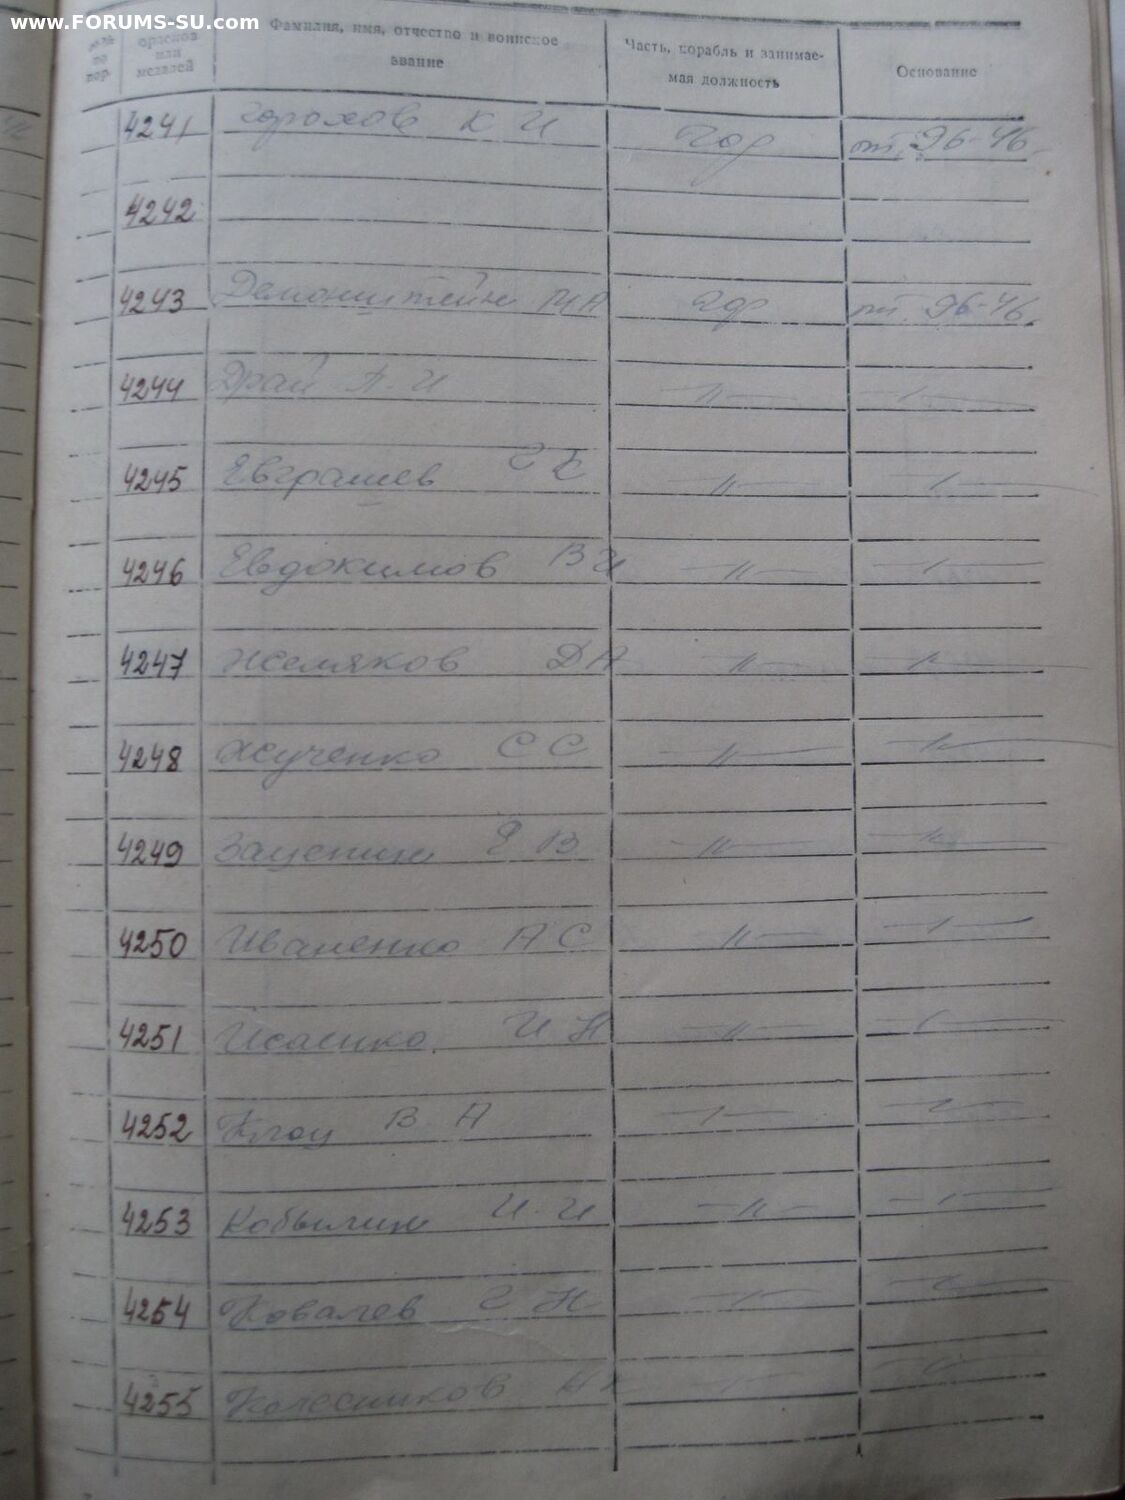 www.FORUMS-SU.com
по пор.
орденов или медалей
Фамилия, имя, отчество и воинское звание
Часть, корабль и занимаемая должность
Основание
4241 Горохов К И 96-46
4242
4243 96-46
4244 Драй А. И —〃— —〃—
4245 —〃— —〃—
4246 Евдокимов В И —〃— —〃—
4247 Желяков Д А —〃— —〃—
4248 Жученко С С —〃— —〃—
4249 —〃— —〃—
4250 Иваненко А С —〃— —〃—
4251 И Н —〃— —〃—
4252 В А —〃— —〃—
4253 Кобылин И. И —〃— —〃—
4254 Ковалев Г Н —〃— —〃—
4255 Колесников —〃— —〃—